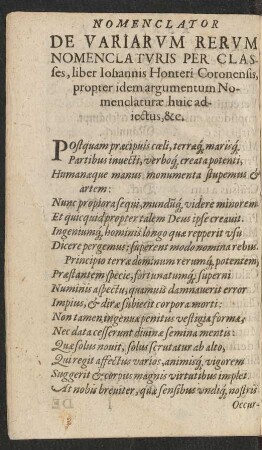 NOMENCLATOR
DE VARIARVM RERVM
NOMENCLATVRIS PER CLAS-
ses, liber Iohannis Honteri Coronensis,
propter idem argumentum No-
menclaturæ huic ad-
iectus, &c.
POstquam præcipuis cœli, terræq́, marisq́,
Partibus inuecti, verboq́, creata potenti,
Humanaque manus monumenta stupemus &
artem:
Nunc propiora sequi, mundúq́, videre minorem
Et quicquid propter talem Deus ipse creauit.
Ingeniumq́, hominis longo quæ repperit vsu
Dicere pergemus: superent modo nomina rebus.
Principio terræ dominum rerumq́, potentem,
Præstantem specie, fortunatumq́, superni
Numinis aspectu, quamuis damnauerit error
Impius, & diræ subiecit corpora morti:
Non tamen ingenuæ penitus vestigia formæ,
Nec data cesserunt diuinæ semina mentis:
Quæ solus nouit, solus scrutatur ab alto,
Qui regit affectus varios, animisq́, vigorem
Suggerit & corpus magnis virtutibus implet.
At nobis breuiter, quæ sensibus vndiq́, nostris
Occur-